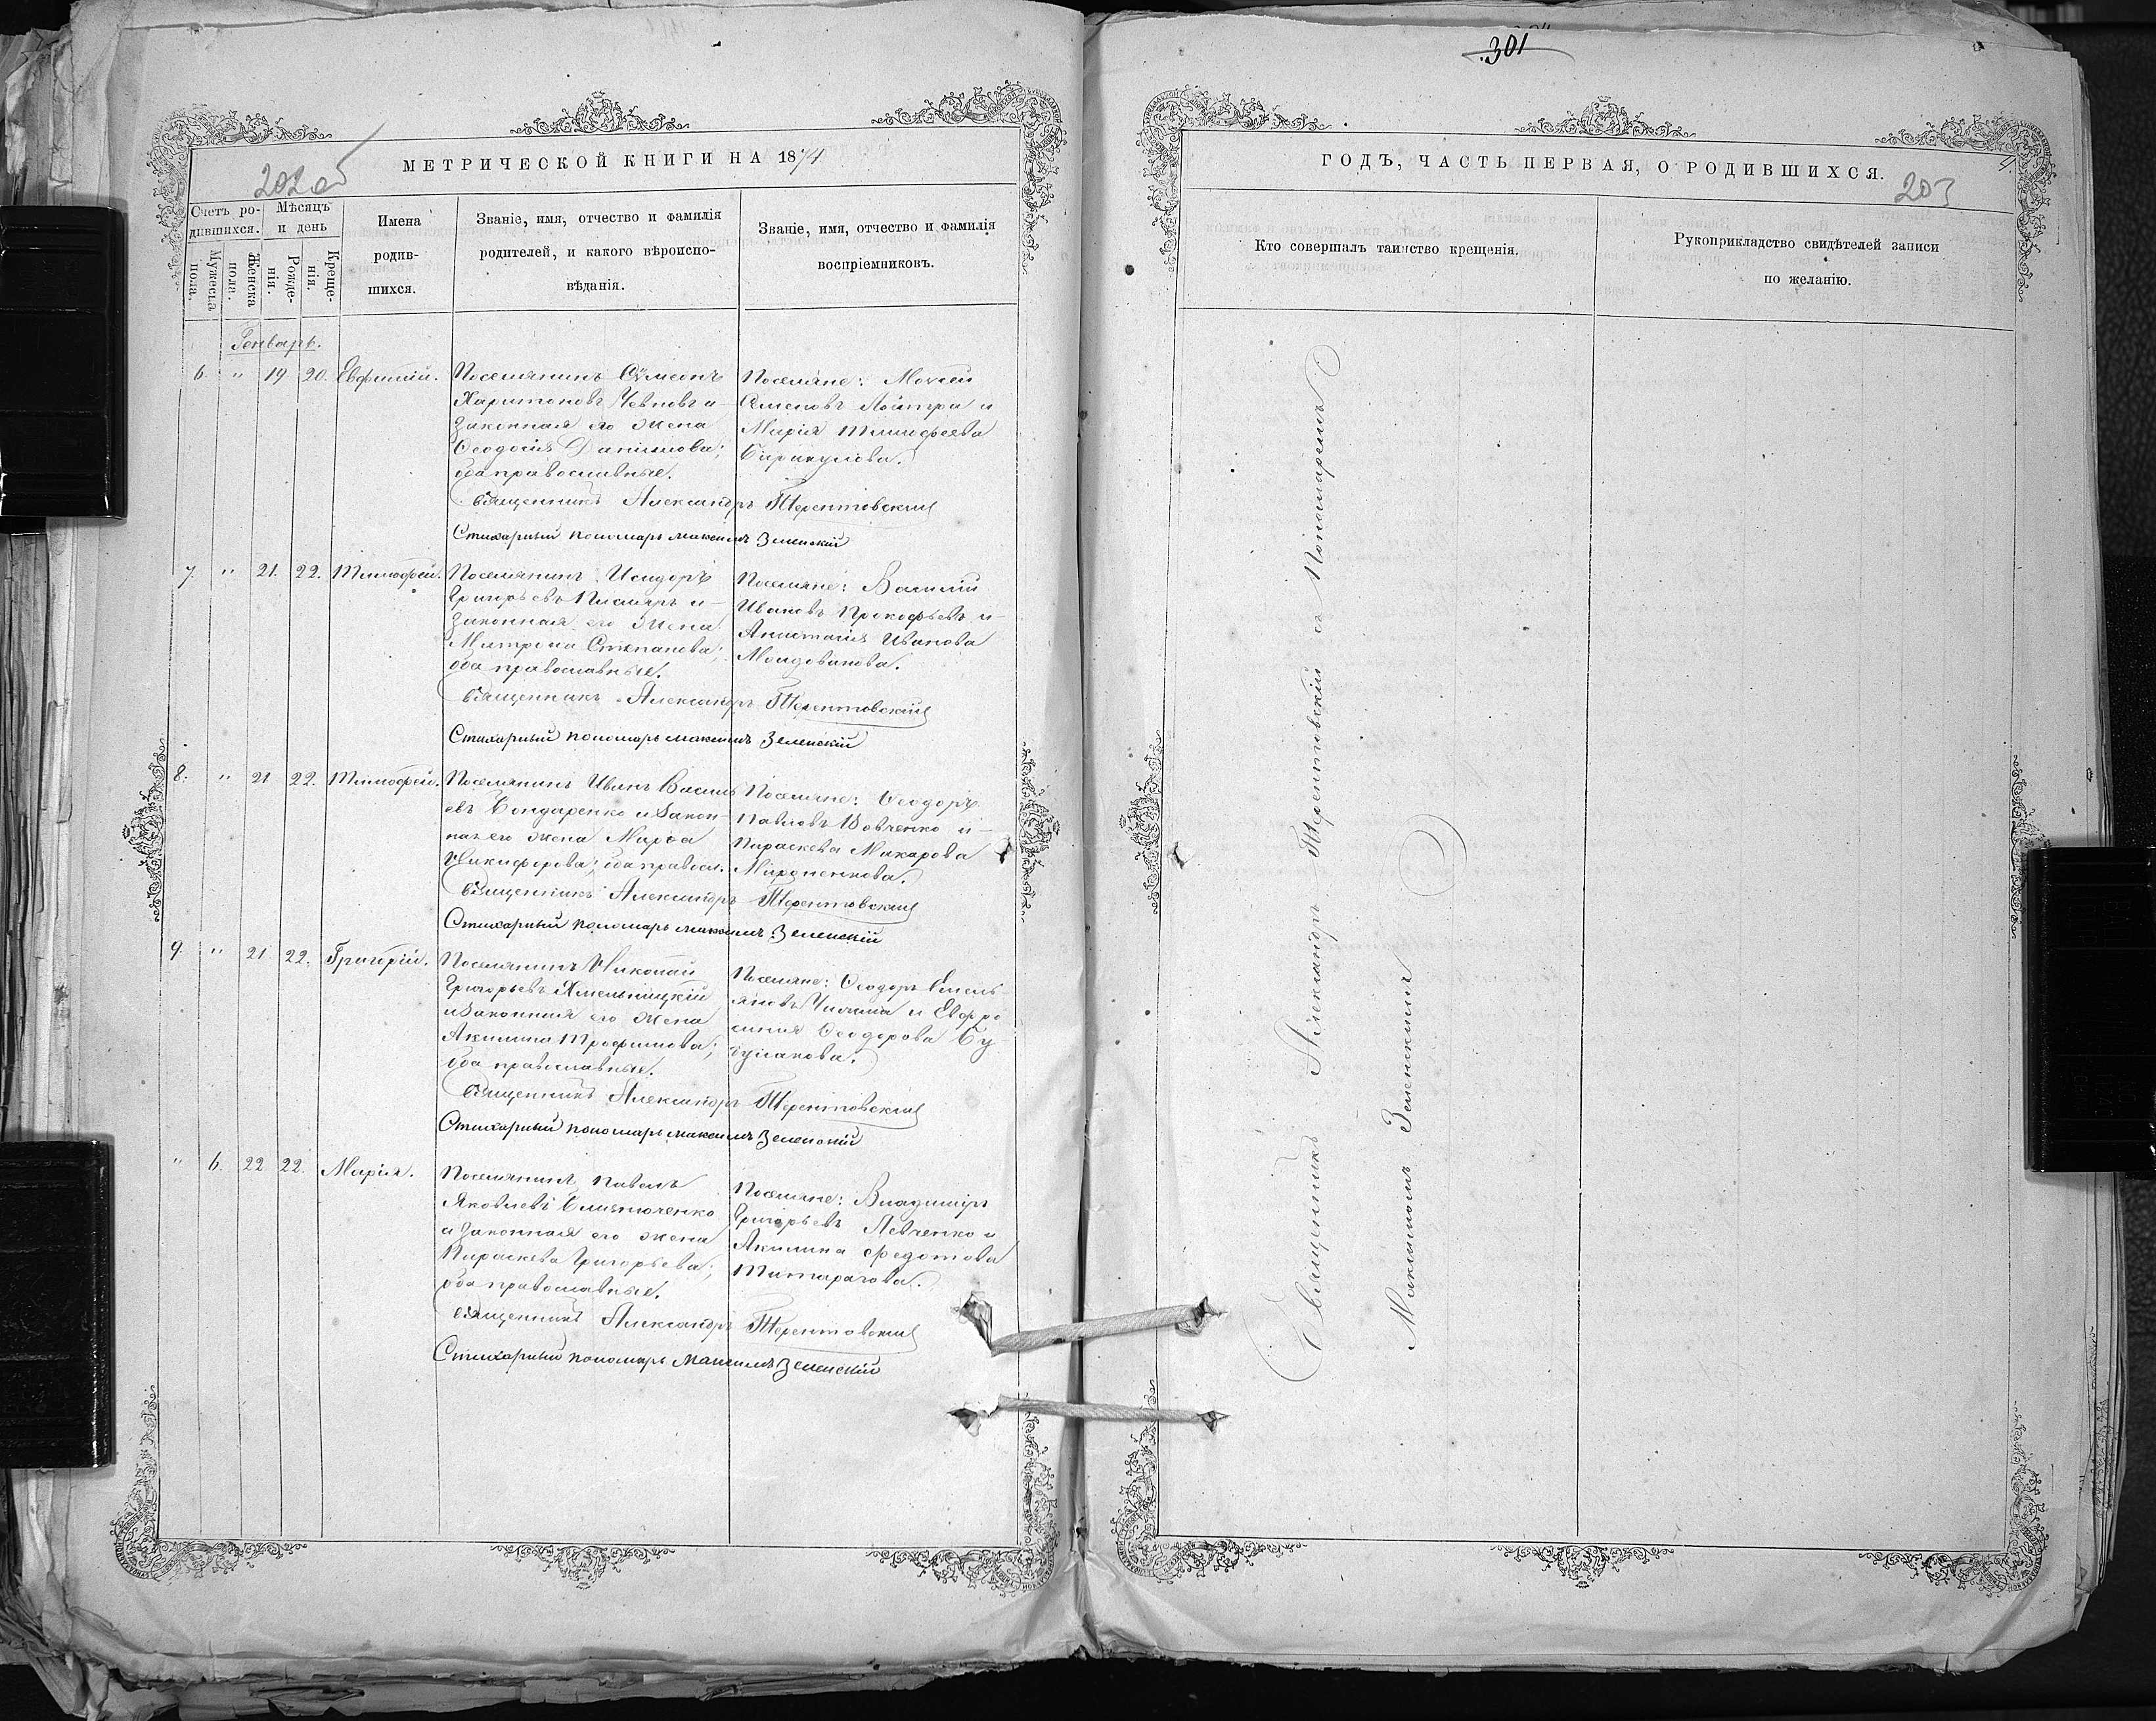 301
МЕТРИЧЕСКОЙ КНИГИ НА 1874
202об
Счетъ ро-
дившихся.
Мѣсяцъ
и день
Мужеска
пола.
Женска
пола.
Рожде-
нія.
Креще-
нія.
Имена
родив-
шихся.
Званіе, имя, отчество и фамилія
родителей, и какого вѣроиспо-
вѣданія.
Званіе, имя, отчество и фамилія
воспріемниковъ.
Генварь.
6. " 19 20. Евфимій.
Поселянинъ Сѵмеонъ
Харитоновъ и
законная его жена
Ѳеодосія Даніилова;
оба православные.
Поселяне: Моѵсей
Семеновъ и
Марія Тимофеева
Священникъ Александръ Терентовский
Стихарный пономарь Максимъ Зеленскій
7. " 21. 22. Тимофей.
Поселянинъ Исидоръ
Григорьевъ Писларь и
законная его жена
Матрона Степанова;
оба православные.
Поселяне: Василій
Ивановъ Прокофьевъ и
Анастасія Иванова
Молдованова.
Священникъ Александръ Терентовский
Стихарный пономарь Максимъ Зеленскій
8. " 21 22. Тимофей.
Поселянинъ Иванъ Василь
евъ Бондаренко и закон-
ная его жена Марѳа
Никифорова; оба правосл.
Поселяне: Ѳеодоръ
Павловъ Вовченко и
Параскева Макарова
Мироненкова.
Священникъ Александръ Терентовский
Стихарный пономарь Максимъ Зеленскій
9. " 21 22. Григорій.
Поселянинъ Николай
Григорьевъ Хмельницкій
и законная его жена
Акилина Трофимова;
оба православные.
Поселяне: Ѳеодоръ Емель
яновъ и Евфро
синия Ѳеодорова Бу
Священникъ Александръ Терентовский
Стихарный пономарь Максимъ Зеленскій
" 6. 22 22. Марія.
Поселянинъ Павелъ
Яковлевъ
и законная его жена
Параскева Григорьева;
оба православные.
Поселяне: Владиміръ
Григорьевъ Левченко и
Акилина Федотова
Священникъ Александръ Терентовский
Стихарный пономарь Максимъ Зеленскій
ГОДЪ, ЧАСТЬ ПЕРВАЯ, О РОДИВШИХСЯ.
4.
203
Кто совершалъ таинство крещенія.
Рукоприкладство свидѣтелей записи
по желанію.
Священникъ Александръ Терентовскій съ Пономаремъ
Максимомъ Зеленскимъ